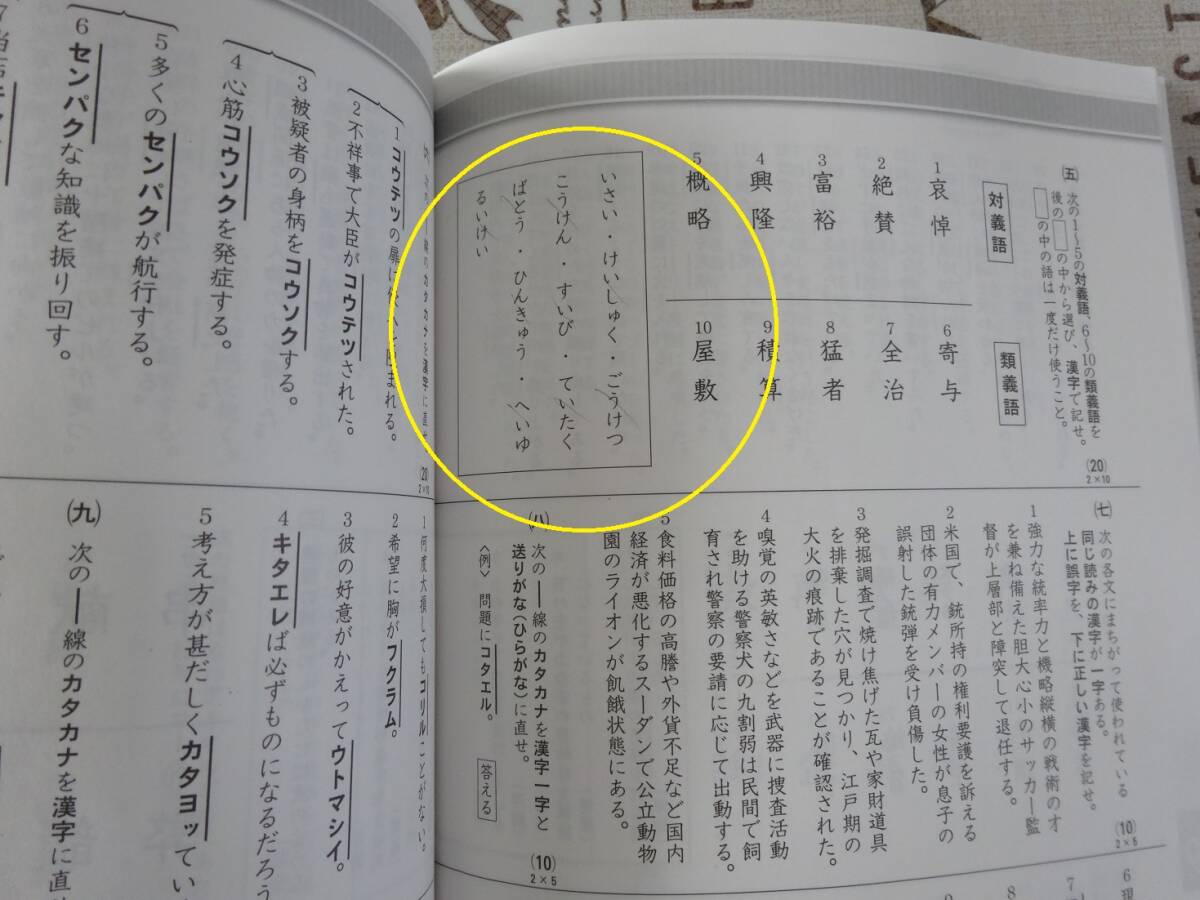 ㈤ 次の1～5の対義語、6～10の類義語を
後の□の中から選び、漢字で記せ。
□の中の語は一度だけ使うこと。
(20)
2×10
対義語
1 哀悼
2 絶賛
3 富裕
4 興隆
5 概略
類義語
6 寄与
7 全治
8 猛者
9 積算
10 屋敷
いさい・けいしゅく・ごうけつ
こうけん・すいび・ていたく
ばとう・ひんきゅう・へいゆ
るいけい
㈦ 次の各文にまちがって使われている
同じ読みの漢字が一字ある。
上に誤字を、下に正しい漢字を記せ。
(10)
2×5
1 強力な統率力と機略縦横の戦術のオ
を兼ね備えた胆大心小のサッカー監
督が上層部と障突して退任する。
2 米国で、銃所持の権利要護を訴える
団体の有力メンバーの女性が息子の
誤射した銃弾を受け負傷した。
3 発掘調査で焼け焦げた瓦や家財道具
を排棄した穴が見つかり、江戸期の
大火の痕跡であることが確認された。
4 嗅覚の英敏さなどを武器に捜査活動
を助ける警察犬の九割弱は民間で飼
育され警察の要請に応じて出動する。
5 食料価格の高騰や外貨不足など国内
経済が悪化するスーダンで公立動物
園のライオンが飢餓状態にある。
㈧ 次の――線のカタカナを漢字一字と
送りがな(ひらがな)に直せ。
〈例〉 問題にコタエル。
答える
(10)
2×5
線のカタカナを漢字に直せ。
(20)
2×10
1 コウテツの扉に
まれる。
2 不祥事で大臣がコウテツされた。
3 被疑者の身柄をコウソクする。
4 心筋コウソクを発症する。
5 多くのセンパクが航行する。
6 センパクな知識を振り回す。
7
1 何度大損してもコリルことがない。
2 希望に胸がフクラム。
3 彼の好意がかえってウトマシイ。
4 キタエレば必ずものになるだろう
5 考え方が甚だしくカタヨッてい
㈨ 次の――線のカタカナを漢字に直
6 現
7
8
9